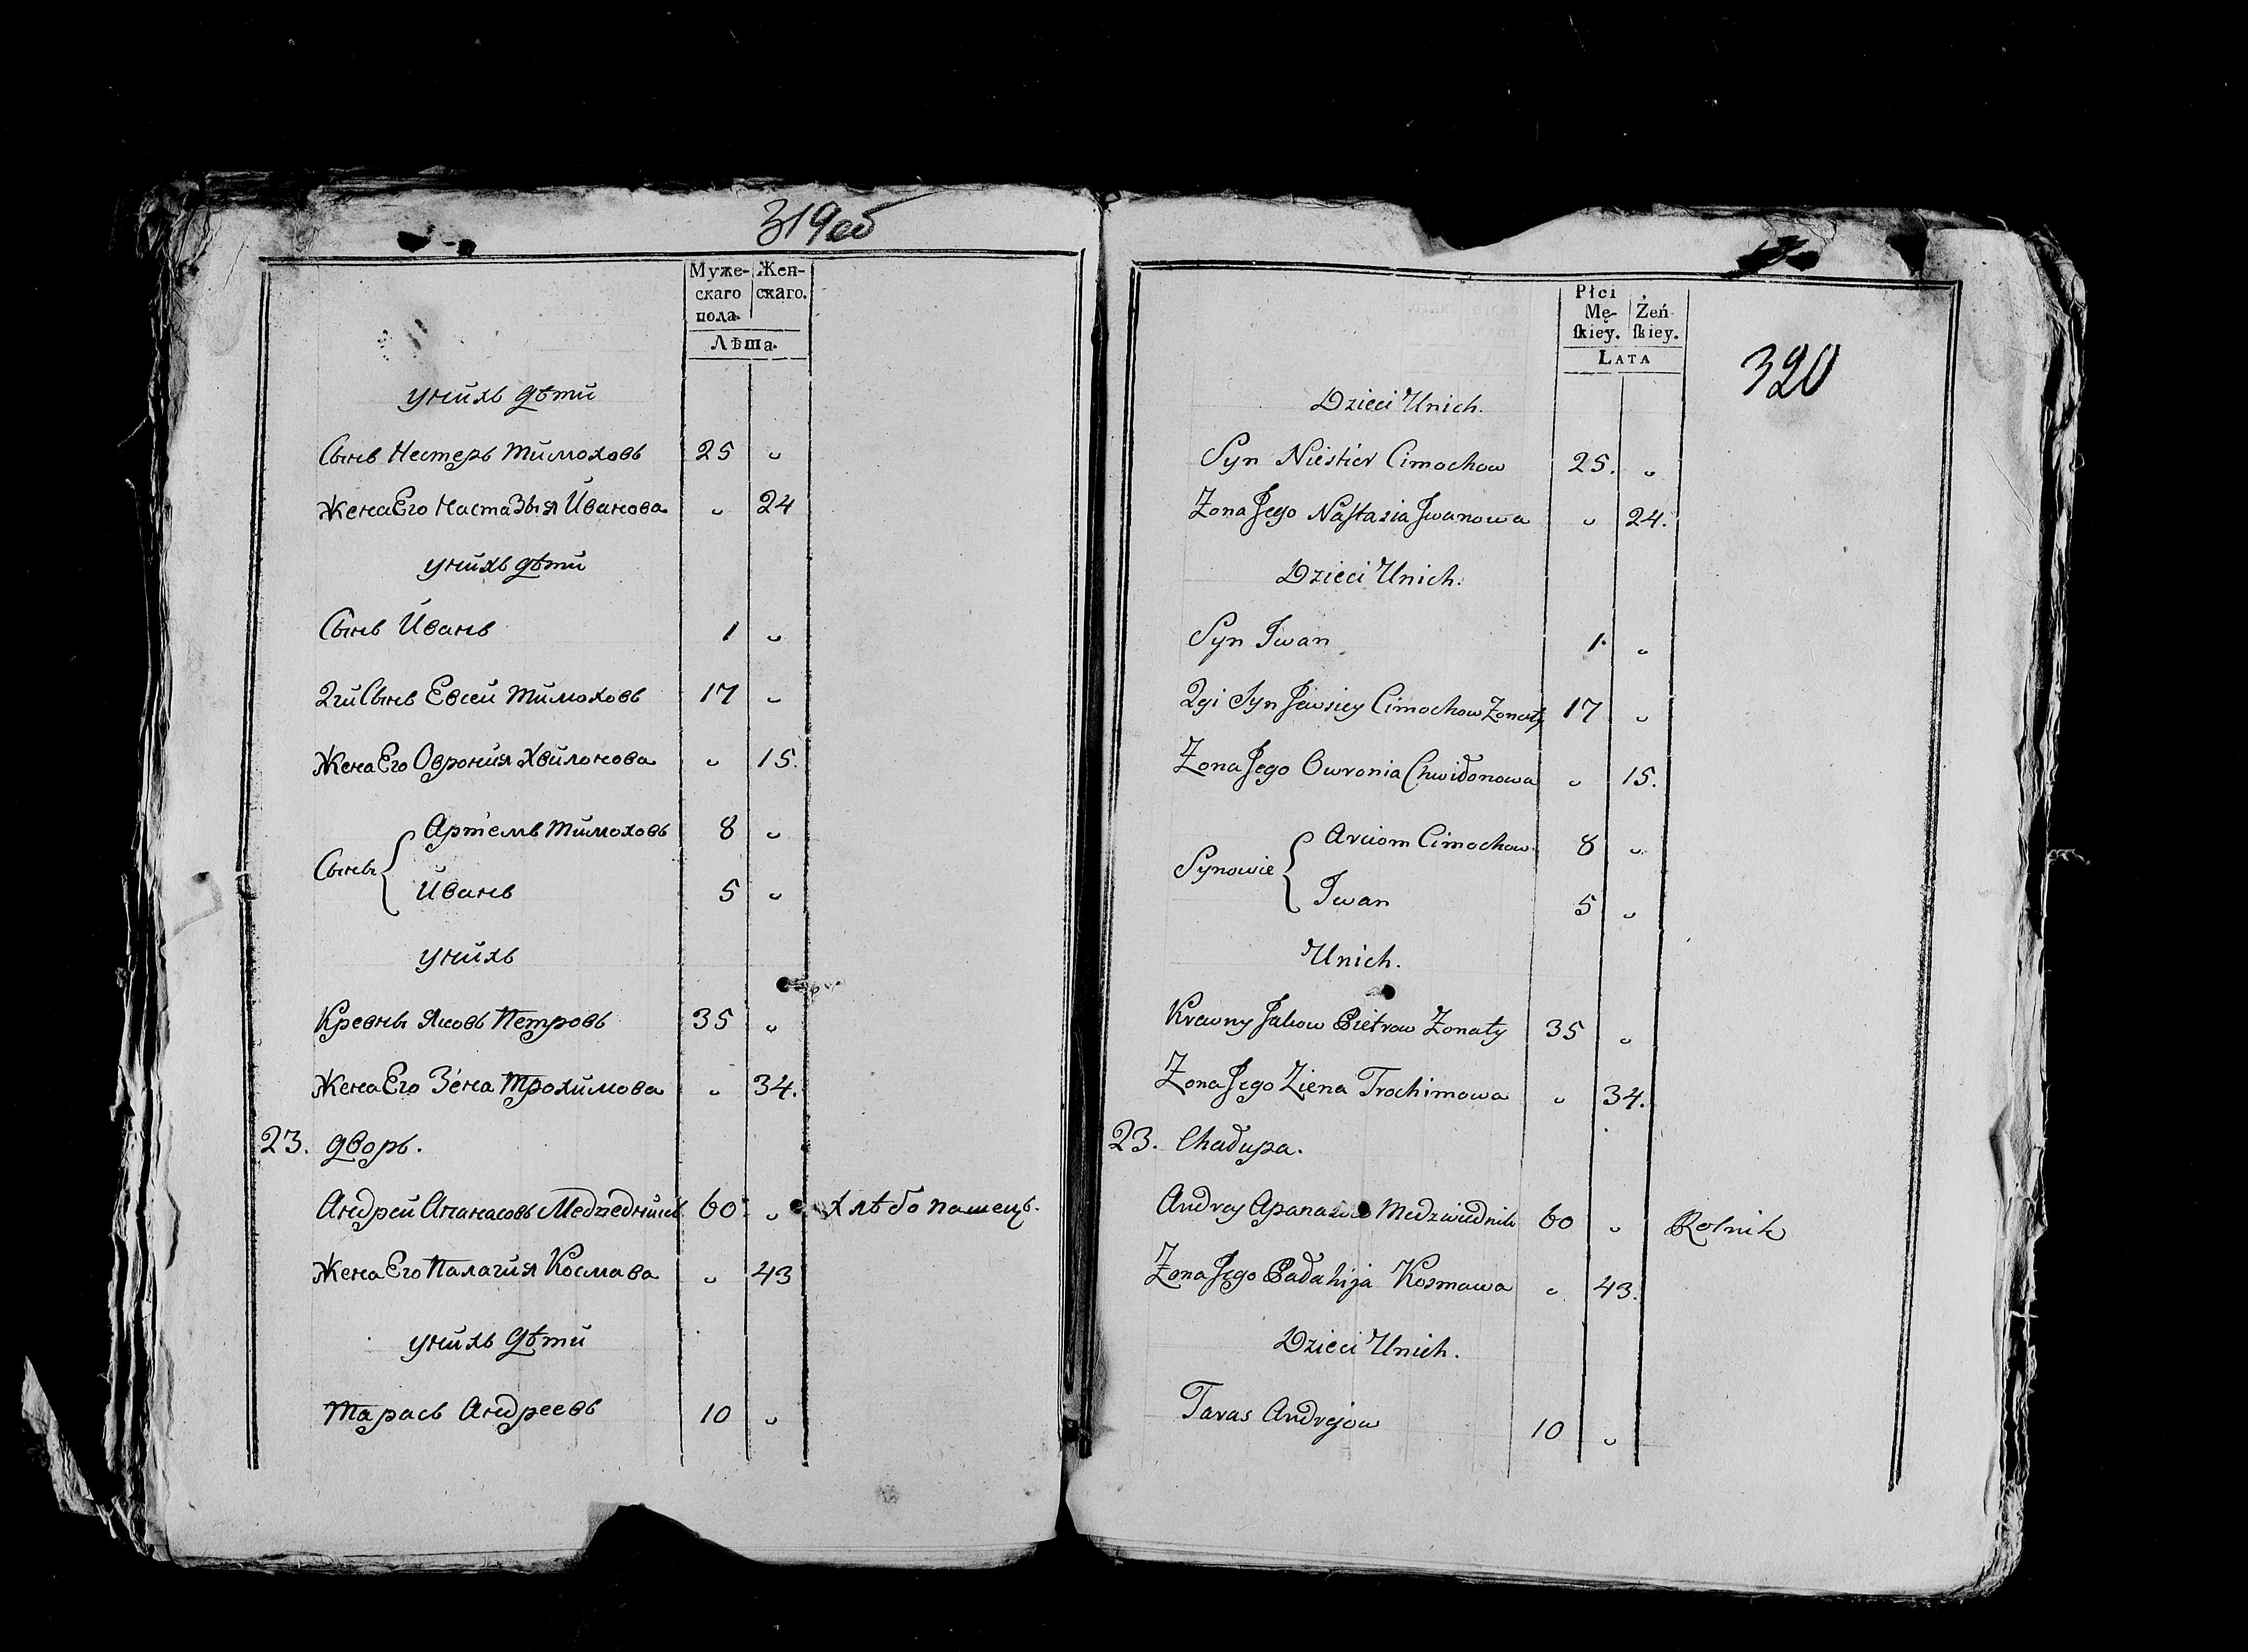 319об
Муже- Жен-
скаго скаго.
пола.
Лѣта.
унихъ дѣти
Сынъ Нестеръ Тимоховъ 25 "
Жена Его Настазыя Иванова " 24
унихъ дѣти
Сынъ Иванъ 1 "
2гй Сынъ Евсей Тимоховъ 17 "
Жена Его Оврония Хвилонова " 15.
Сыны { Артемъ Тимоховъ 8 "
Иванъ 5 "
унихъ
Кревны Яковъ Петровъ 35 "
Жена Его Зена Трохимова " 34.
23. дворъ.
Андрей Апанасовъ Медзведникъ 60 " хлѣбопашецъ.
Жена Его Палагия Космава " 43
унихъ дѣти
Тарасъ Андреевъ 10 "
320
Płci
Mę- Żeń
skiey. skiey.
LATA
Dzieci Unich.
Syn Niestier Cimochow 25. "
Żona Jego Nastasia Jwanowa " 24.
Dzieci Unich.
Syn Jwan 1. "
2gi Syn Jewsiey Cimochow Żonaty 17 "
Żona Jego Owronia Chwiłonowa " 15.
Synowie { Arciom Cimochow 8 "
Jwan 5 "
Unich.
Krewny Jakow Pietrow Żonaty 35 "
Żona Jego Ziena Trochimowa " 34.
23. Chałupa.
Andrey Apanasow Medzwiednik 60 " Rolnik
Żona Jego Pałahija Kosmawa " 43.
Dzieci Unich.
Taras Andrejow 10 "